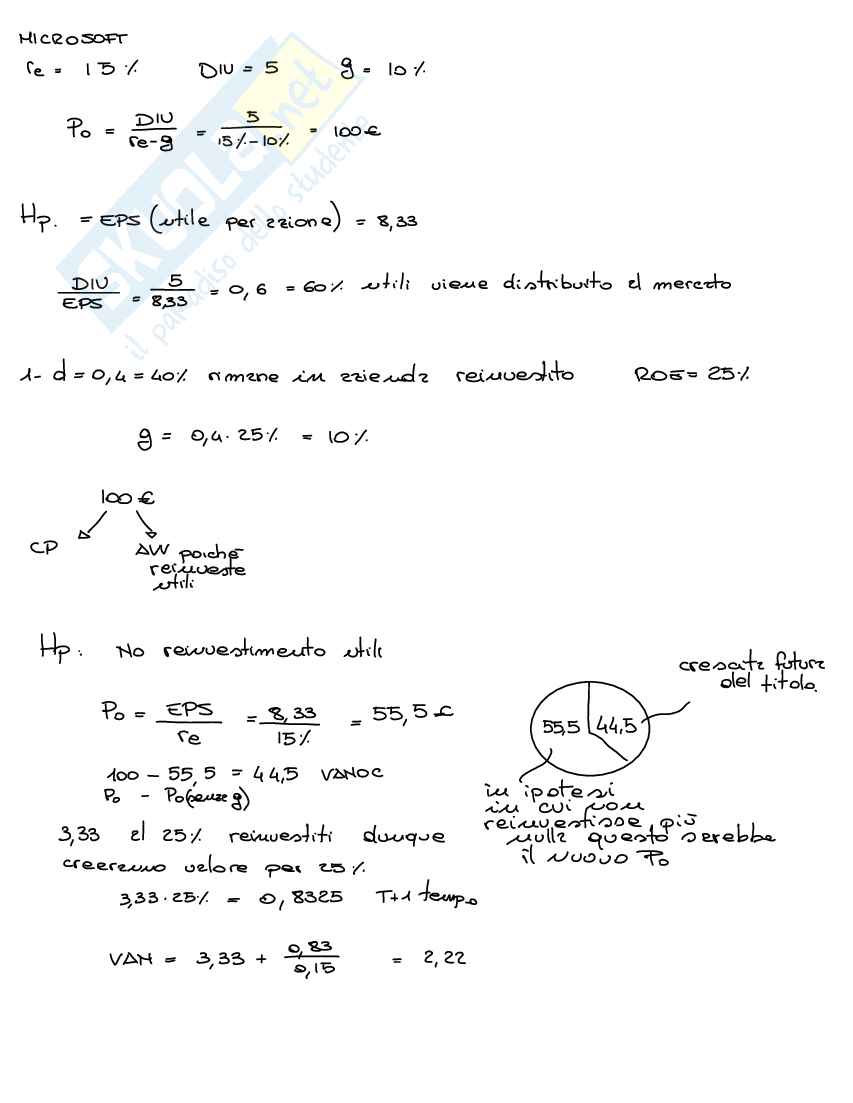 MICROSOFT
re = 15% DIV = 5 g = 10%
P0 = DIV / re-g = 5 / 15%-10% = 100€
Hp. = EPS (utile per azione) = 8,33
DIV / EPS = 5 / 8,33 = 0,6 = 60% utili viene distribuito al mercato
1- d = 0,4 = 40% rimane in azienda reinvestito ROE = 25%
g = 0,4 · 25% = 10%
100€
CP
ΔW poiché
reinveste
utili
Hp: No reinvestimento utili
P0 = EPS / re = 8,33 / 15% = 55,5€
100 - 55,5 = 44,5 VANOC
P0 - P0(senza g)
crescita futura
del titolo.
55,5 44,5
in ipotesi
in cui non
reinvestisse più
nulla questo sarebbe
il nuovo P0
3,33 al 25% reinvestiti dunque
creeranno valore per 25%
3,33 · 25% = 0,8325 T+1 tempo
VAN = 3,33 + 0,83 / 0,15 = 2,22
SKUOLA.net
il paradiso dello studente